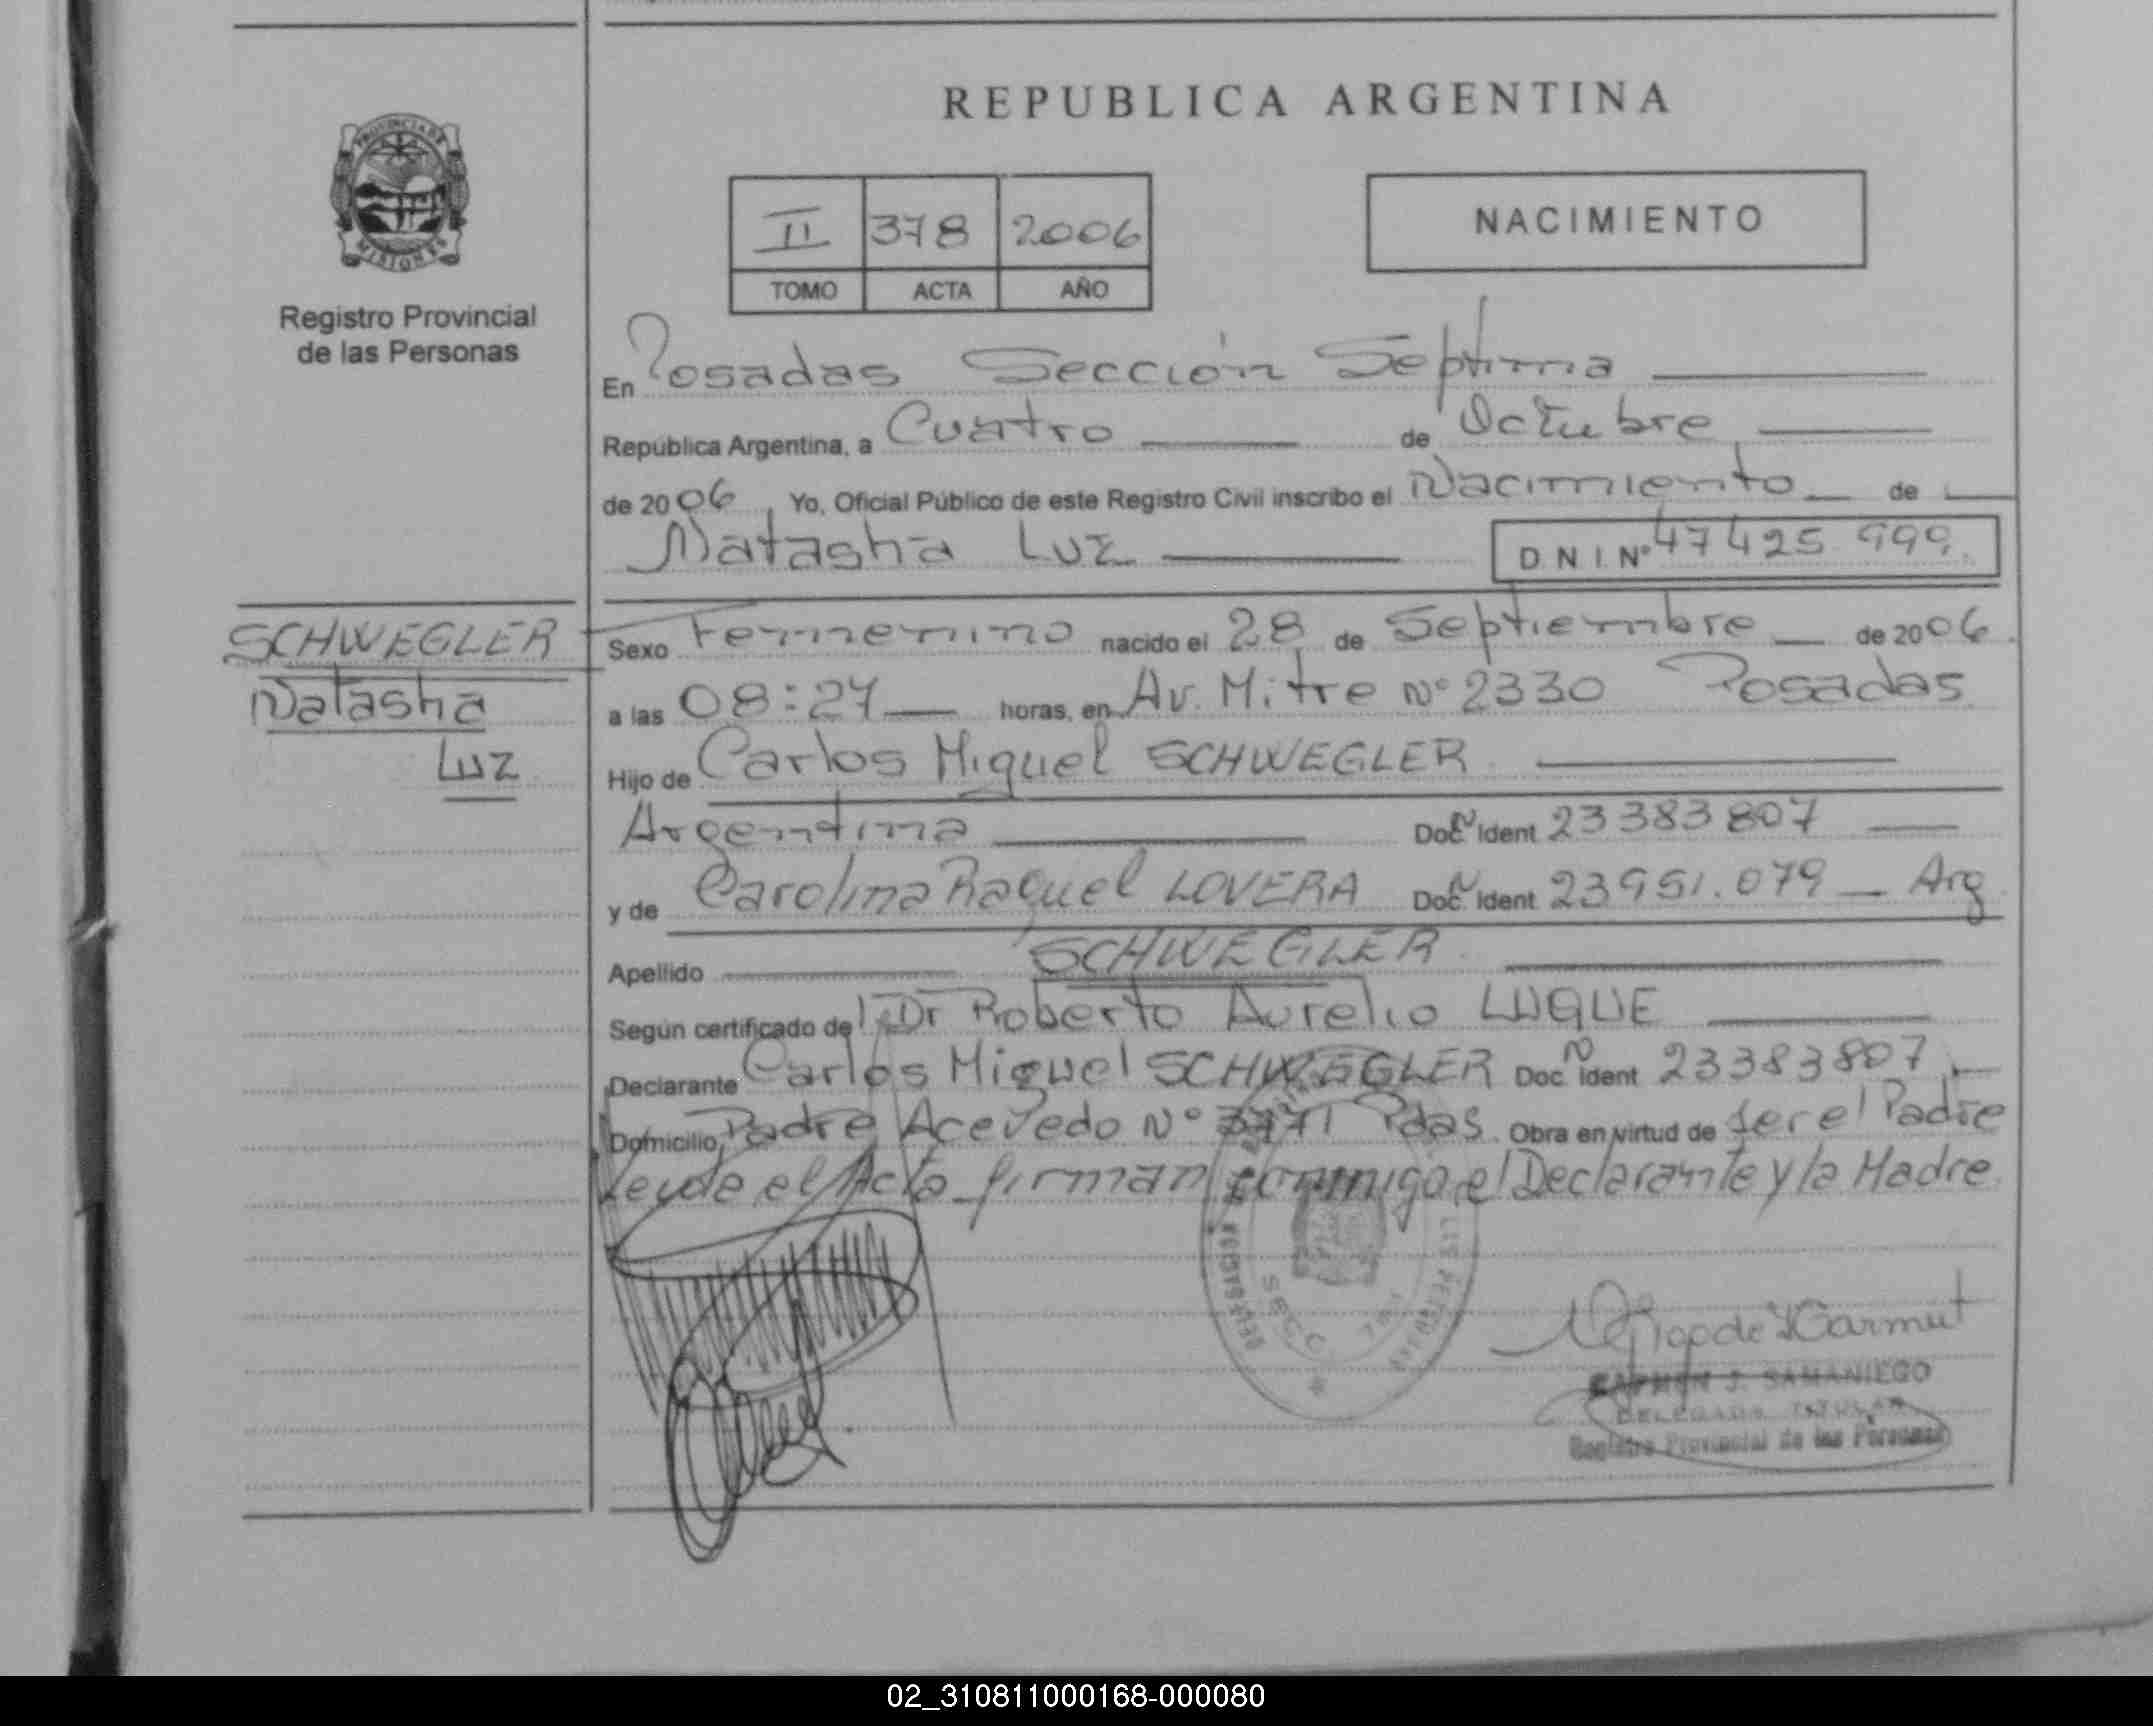 REPUBLICA ARGENTINA
PROVINCIA DE
MISIONES
Registro Provincial
de las Personas
II 378 2006
TOMO ACTA AÑO
NACIMIENTO
En Posadas Sección Septima
Republica Argentina, a Cuatro de Octubre
de 2006, Yo, Oficial Público de este Registro Civil inscribo el Nacimiento de
Natasha Luz D.N.I. Nº 47425.999
SCHWEGLER
Natasha
Luz
Sexo Femenino nacido el 28 de Septiembre de 2006
a las 08:27 horas, en Av. Mitre Nº 2330 Posadas
Hijo de Carlos Miguel SCHWEGLER
Argentina Doc. N Ident 23383807
y de Carolina Raquel LOVERA Doc. N Ident 23951.079 Arg
Apellido SCHWEGLER
Según certificado del Dr Roberto Aurelio LUQUE
Declarante Carlos Miguel SCHWEGLER Doc. N Ident 23383807
Domicilio Padre Acevedo Nº 3771 Pdas. Obra en virtud de ser el Padre
Leyda el Acta firman conmigo el Declarante y la Madre
CARMEN J. SAMANIEGO
DELEGADA TITULAR
Registro Provincial de las Personas
02_310811000168-000080